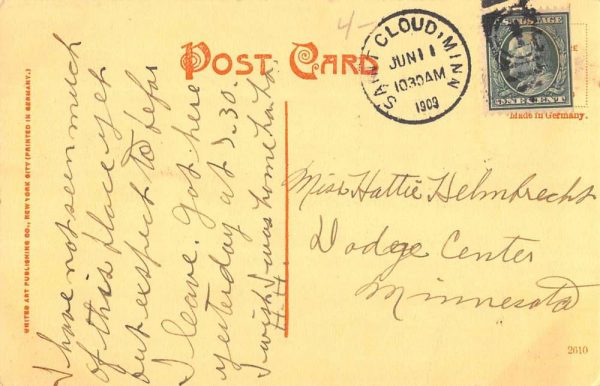 POST CARD
4-
SAINT CLOUD, MINN
JUN 11
1030AM
1909
U.S. POSTAGE
ONE CENT
Made in Germany.
UNITED ART PUBLISHING CO., NEW YORK CITY (PRINTED IN GERMANY.)
I have not seen much
of this place yet
but expect to before
I leave. Got here
yesterday at 3.30.
I wish I was home ha ha,
H.H.
Miss Hattie Helmbrecht
Dodge Center
Minnesota
2610